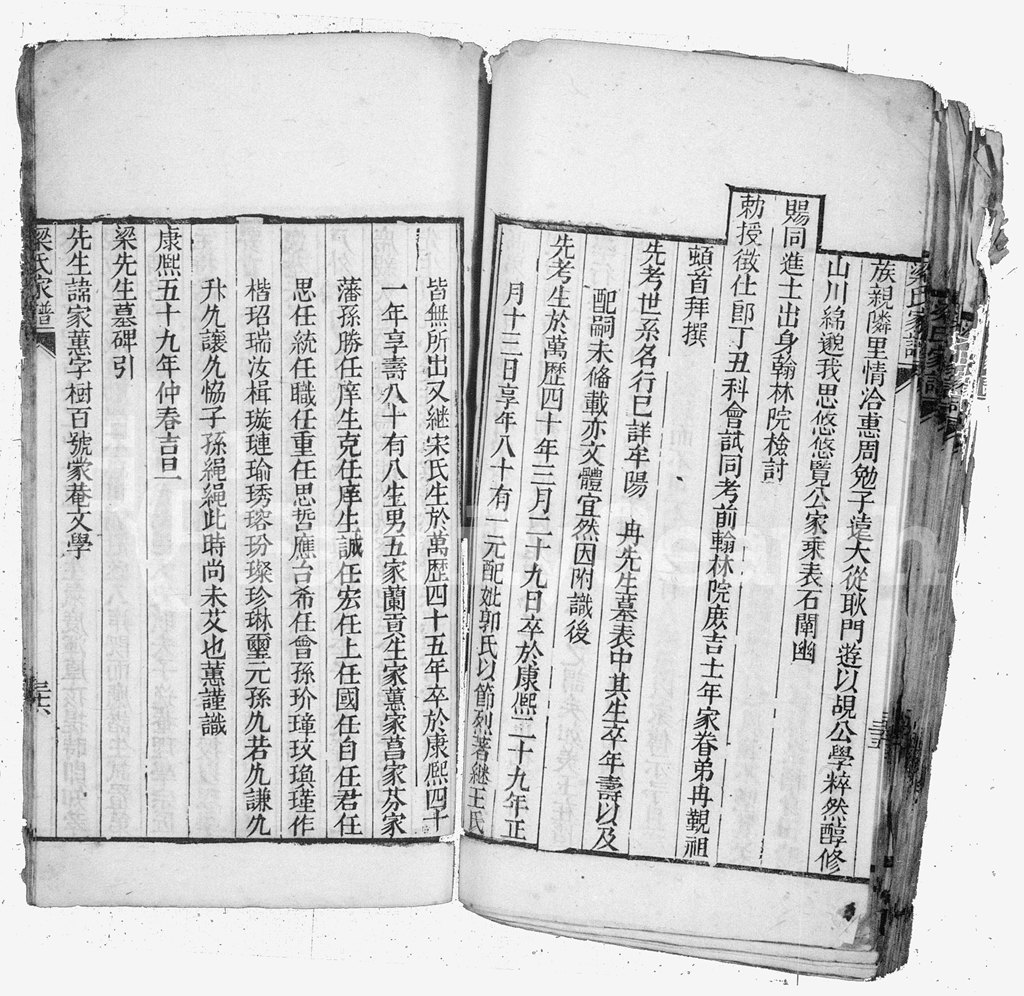 梁氏家譜
族親隣里情洽惠周勉子遠大從耿門遊以覘公學粹然醇修
山川綿邈我思悠悠覽公家乘表石闡幽
賜同進士出身翰林院檢討
勅授徵仕郎丁丑科會試同考前翰林院庶吉士年家眷弟冉覲祖
頓首拜撰
先考世系名行已詳牟陽 冉先生墓表中其生卒年壽以及
配嗣未俻載亦文體宜然因附識後
先考生於萬歷四十年三月二十九日卒於康熈二十九年正
月十三日享年八十有一元配妣郭氏以節烈著繼王氏
皆無所出又繼宋氏生於萬歷四十五年卒於康熈四十
一年享壽八十有八生男五家蘭貢生家蕙家菖家芬家
藩孫勝任庠生克任庠生誠任宏任上任國任自任君任
思任統任職任重任思哲應台希任曾孫玠璋玟瑍瑾作
楷玿瑞汝楫璇璉瑜琇瑢玢璨珍琳璽元孫九若九謙九
升九讓九恊子孫繩繩此時尚未艾也蕙謹識
康熈五十九年仲春吉旦
梁先生墓碑引
先生諱家蕙字樹百號蒙菴文學
梁氏家譜
三十六